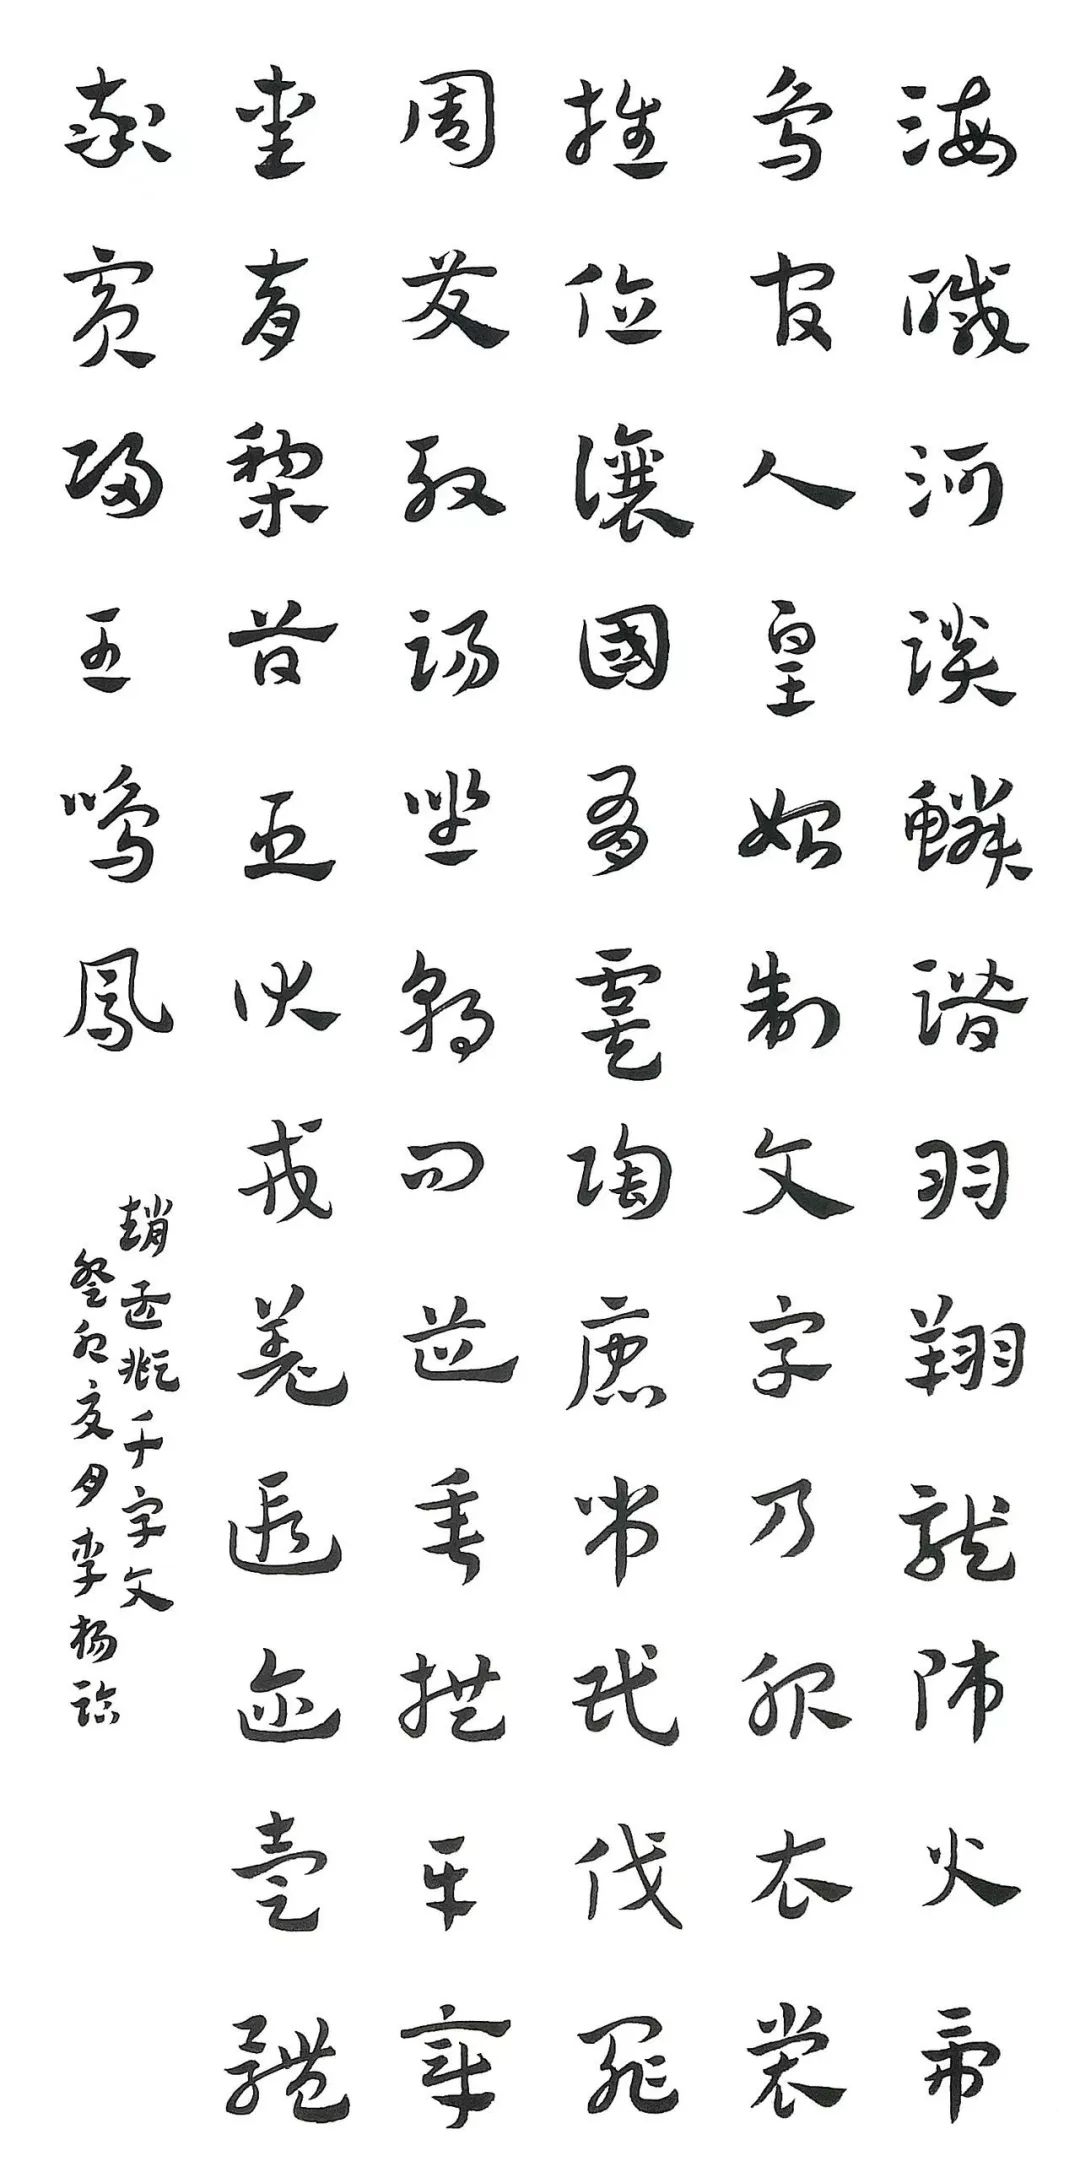 海鹹河淡鱗潛羽翔龍師火帝
鳥官人皇始制文字乃服衣裳
推位讓國有虞陶唐弔民伐罪
周發殷湯坐朝問道垂拱平章
愛育黎首臣伏戎羌遐邇壹體
率賓歸王鳴鳳
趙孟頫千字文
癸卯夏月李楊